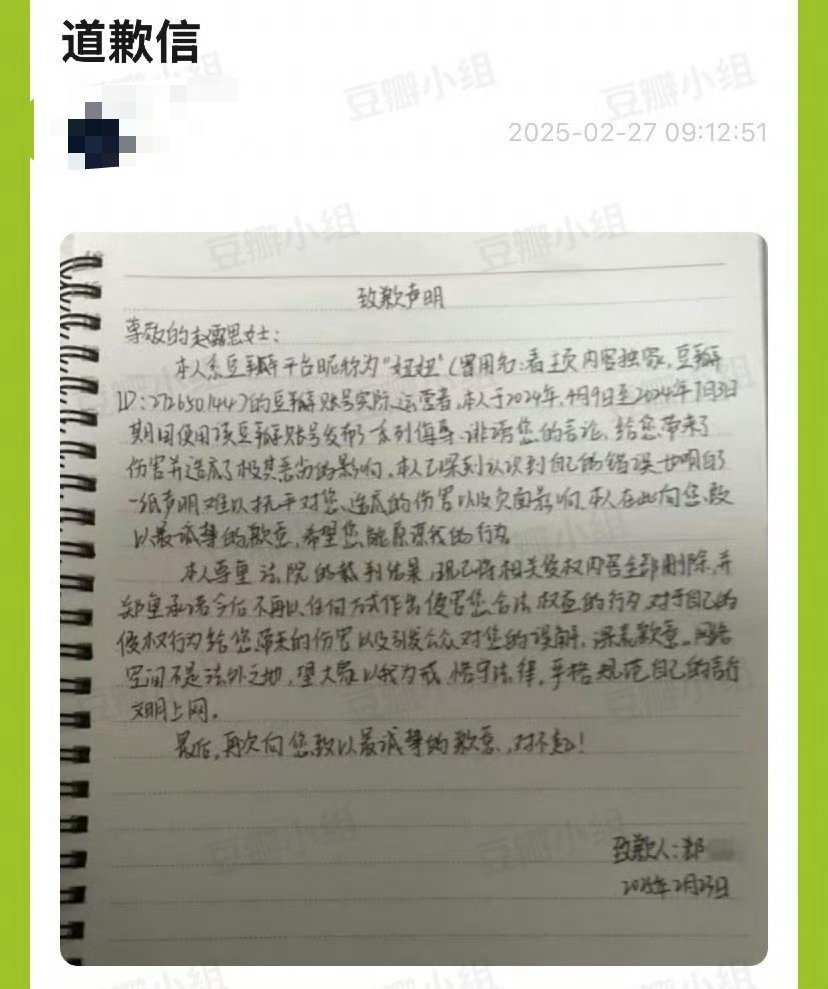 道歉信
2025-02-27 09:12:51
豆瓣小组
致歉声明
尊敬的赵露思女士：
本人系豆瓣平台昵称为“妞妞”（曾用名：看主页内容独家，豆瓣
ID：272650144）的豆瓣账号实际运营者，本人于2024年4月9日至2024年7月3日
期间使用该豆瓣账号发布了系列侮辱、诽谤您的言论，给您带来了
伤害并造成了极其恶劣的影响。本人已深刻认识到自己的错误，也明白了
一纸声明难以抚平对您造成的伤害以及负面影响，本人在此向您致
以最诚挚的歉意，希望您能原谅我的行为。
本人尊重法院的裁判结果，现已将相关侵权内容全部删除，并
郑重承诺今后不再以任何方式作出侵害您合法权益的行为，对于自己的
侵权行为给您带来的伤害以及引发公众对您的误解，深表歉意。网络
空间不是法外之地，望大家以我为戒，恪守法律，严格规范自己的言行
文明上网。
最后，再次向您致以最诚挚的歉意，对不起！
致歉人：郑
2025年2月23日